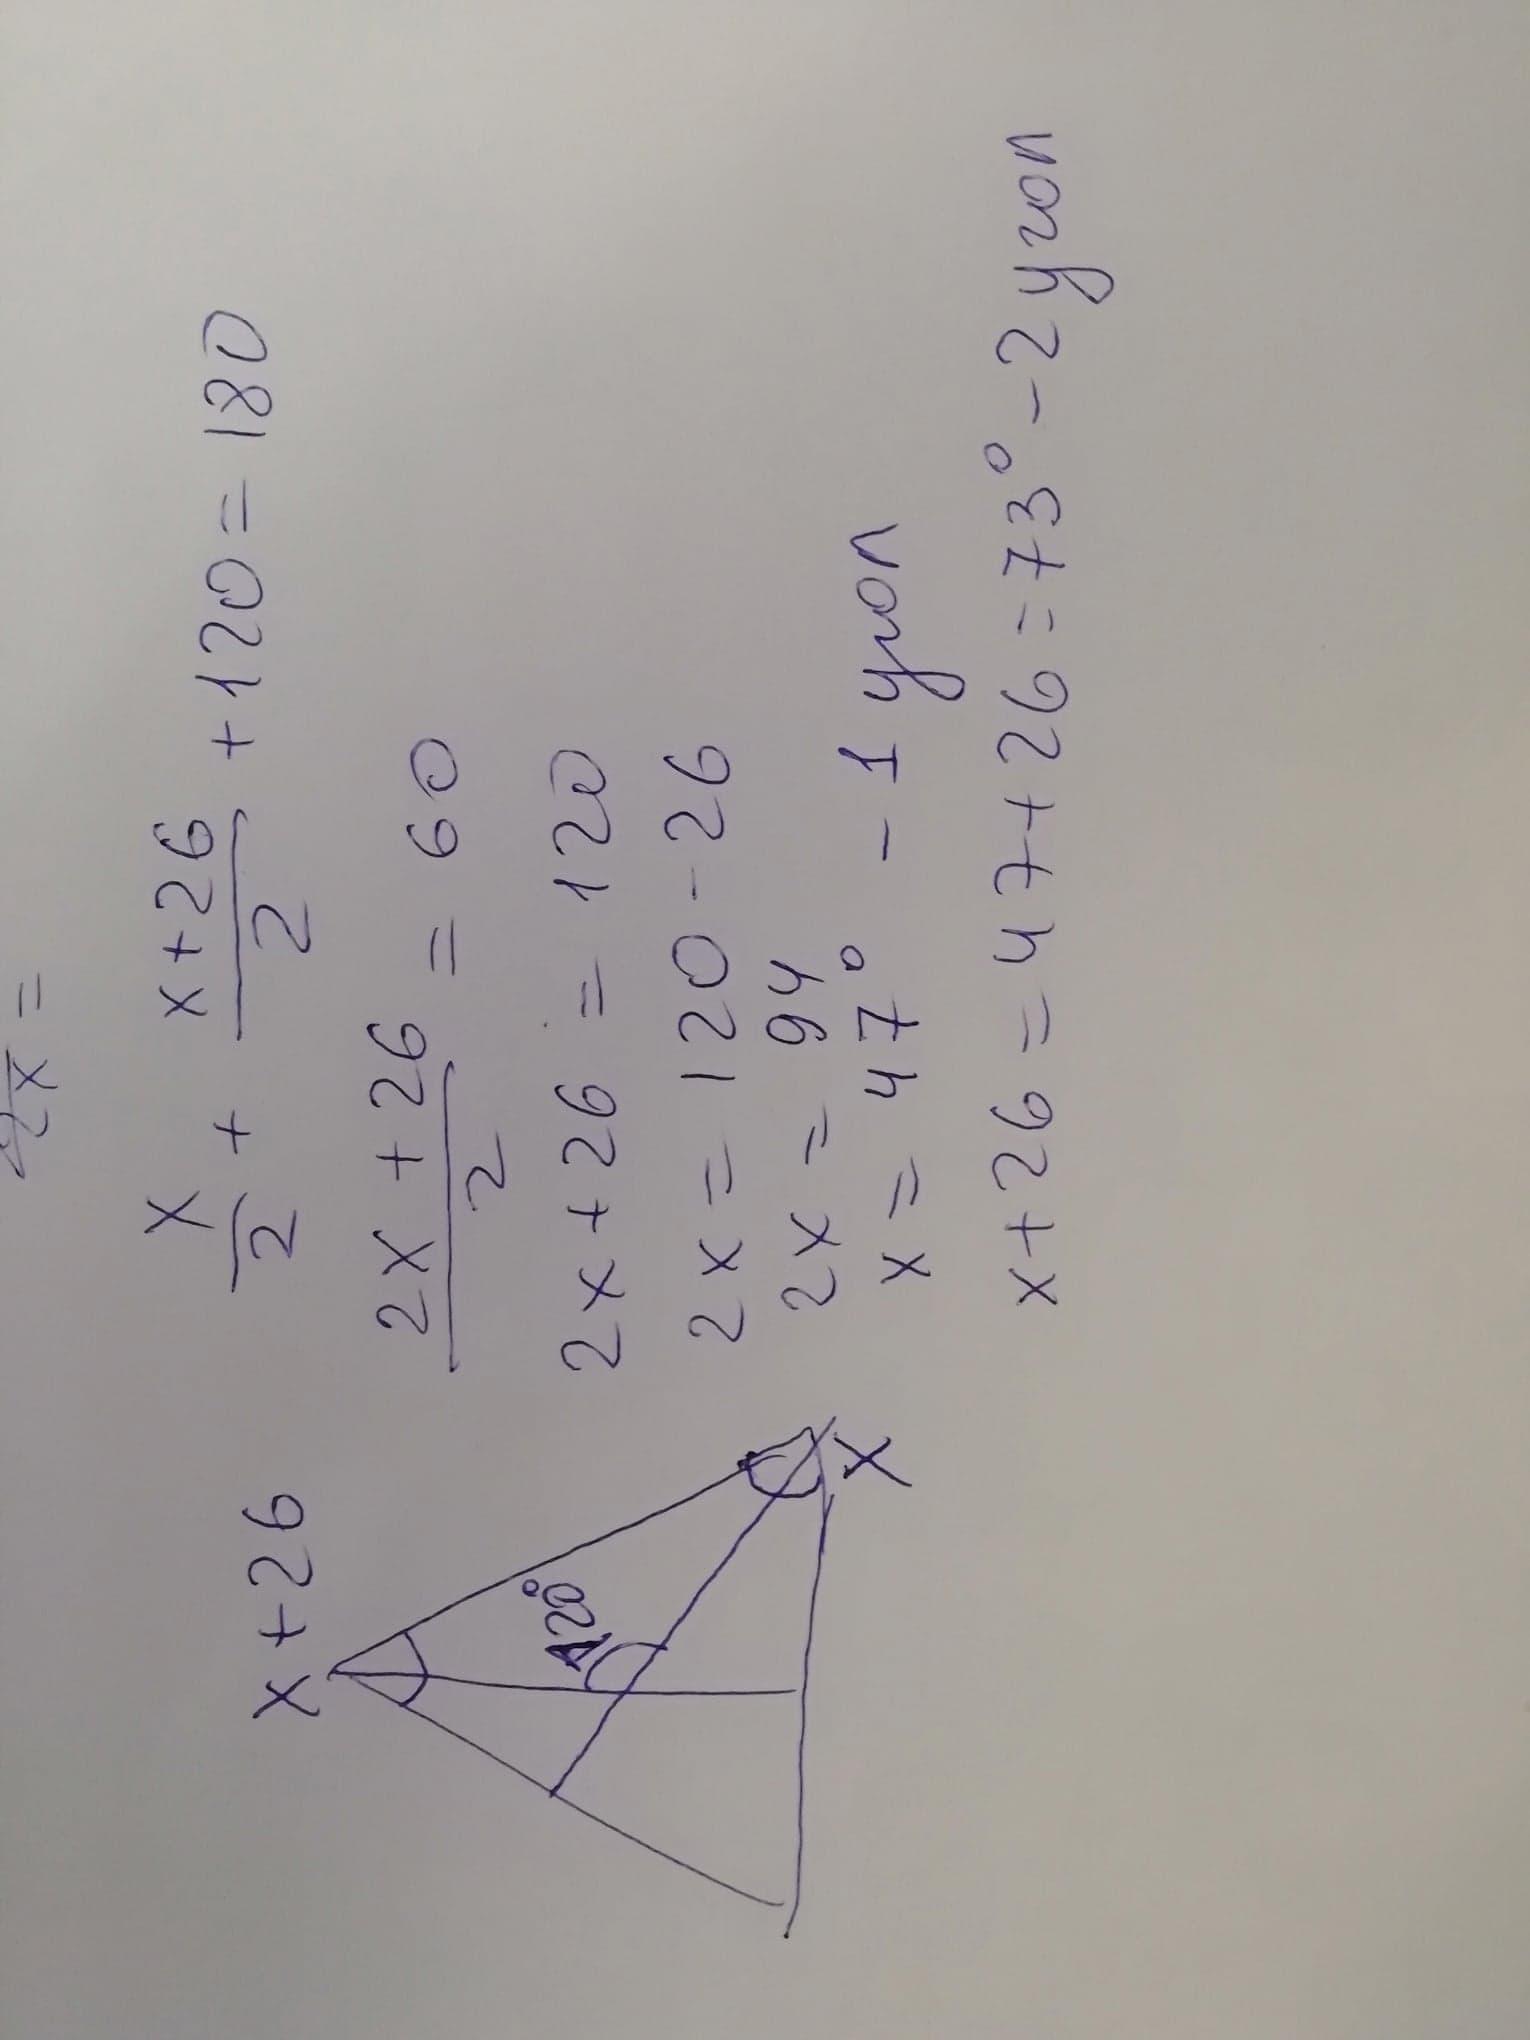 2x =
x/2 + (x+26)/2 + 120 = 180
(2x + 26)/2 = 60
2x + 26 = 120
2x = 120 - 26
2x = 94
x = 47° - 1 угол
x + 26 = 47 + 26 = 73° - 2 угол
x + 26
120°
x